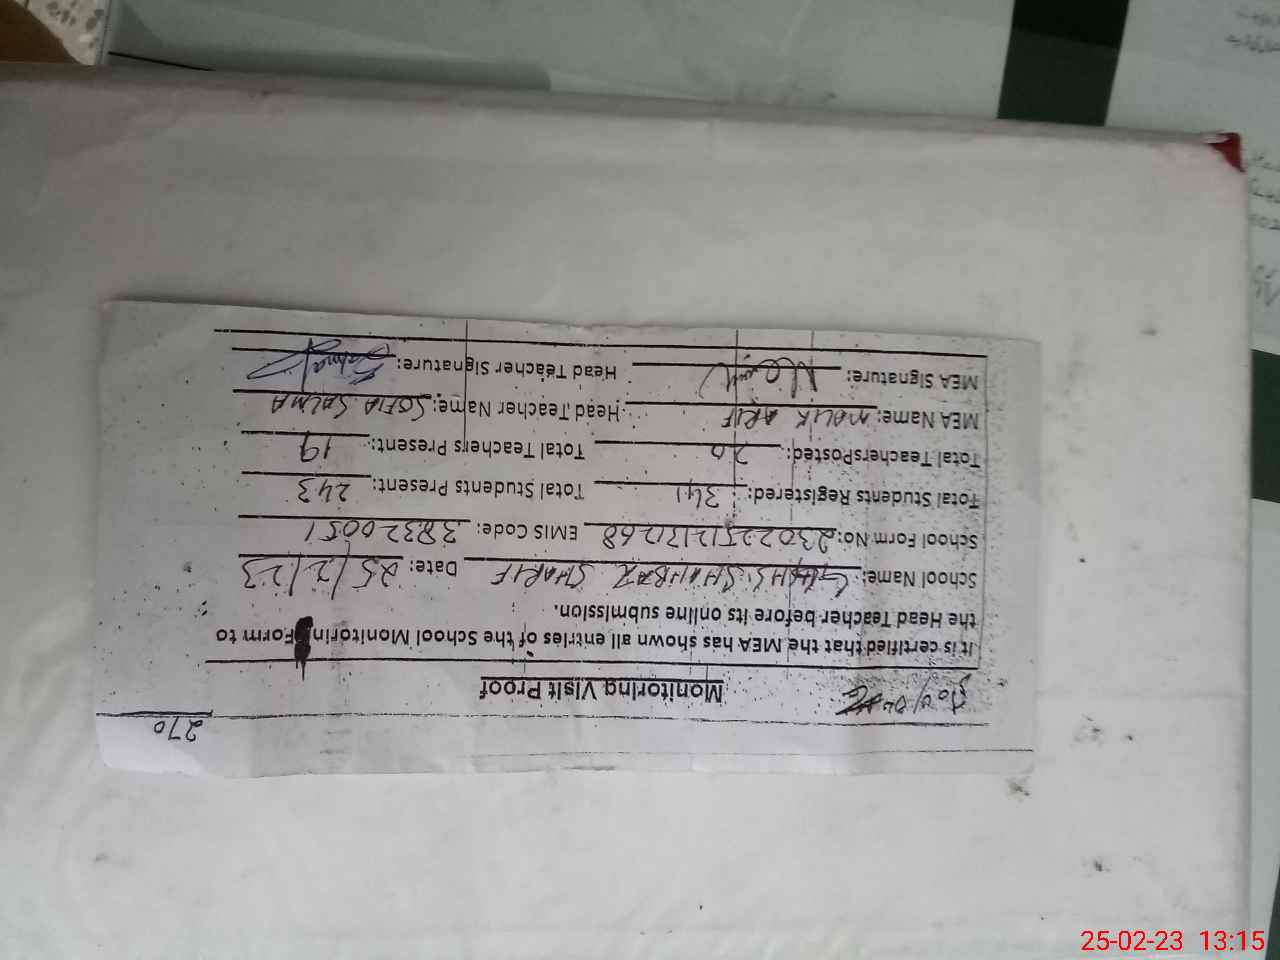 270
Monitoring Visit Proof
It is certified that the MEA has shown all entries of the School Monitoring Form to
the Head Teacher before its online submission.
School Name: GGHHS SHAHBAZ SHARIF Date: 25/2/23
School Form No: 230225121312268 EMIS Code: 38320051
Total Students Registered: 341 Total Students Present: 243
Total TeachersPosted: 20 Total Teachers Present: 19
MEA Name: MALIK ARIF Head Teacher Name: SOFIA SALMA
MEA Signature: Head Teacher Signature: Salma
25-02-23 13:15